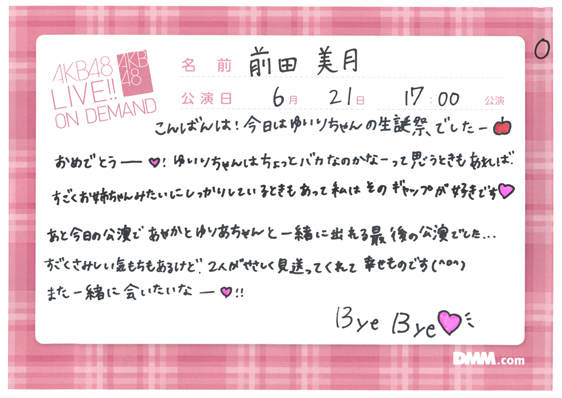 AKB48
LIVE!!
ON DEMAND
AKB
48
名 前 前田 美月
公演日 6月 21日 17:00 公演
こんばんは!今日はゆいりちゃんの生誕祭、でしたー
おめでとうー!ゆいりちゃんはちょっとバカなのかなーって思うときもあれば、
すごくお姉ちゃんみたいにしっかりしているときもあって私はそのギャップが好きです
あと今日の公演であやかとゆりあちゃんと一緒に出れる最後の公演でした...
すごくさみしい気もちもあるけど、2人がやさしく見送ってくれて幸せものです(^o^)
また一緒に会いたいなー!!
Bye Bye
DMM.com